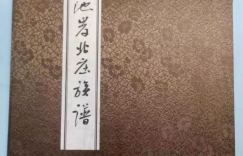 池岩北庄族谱